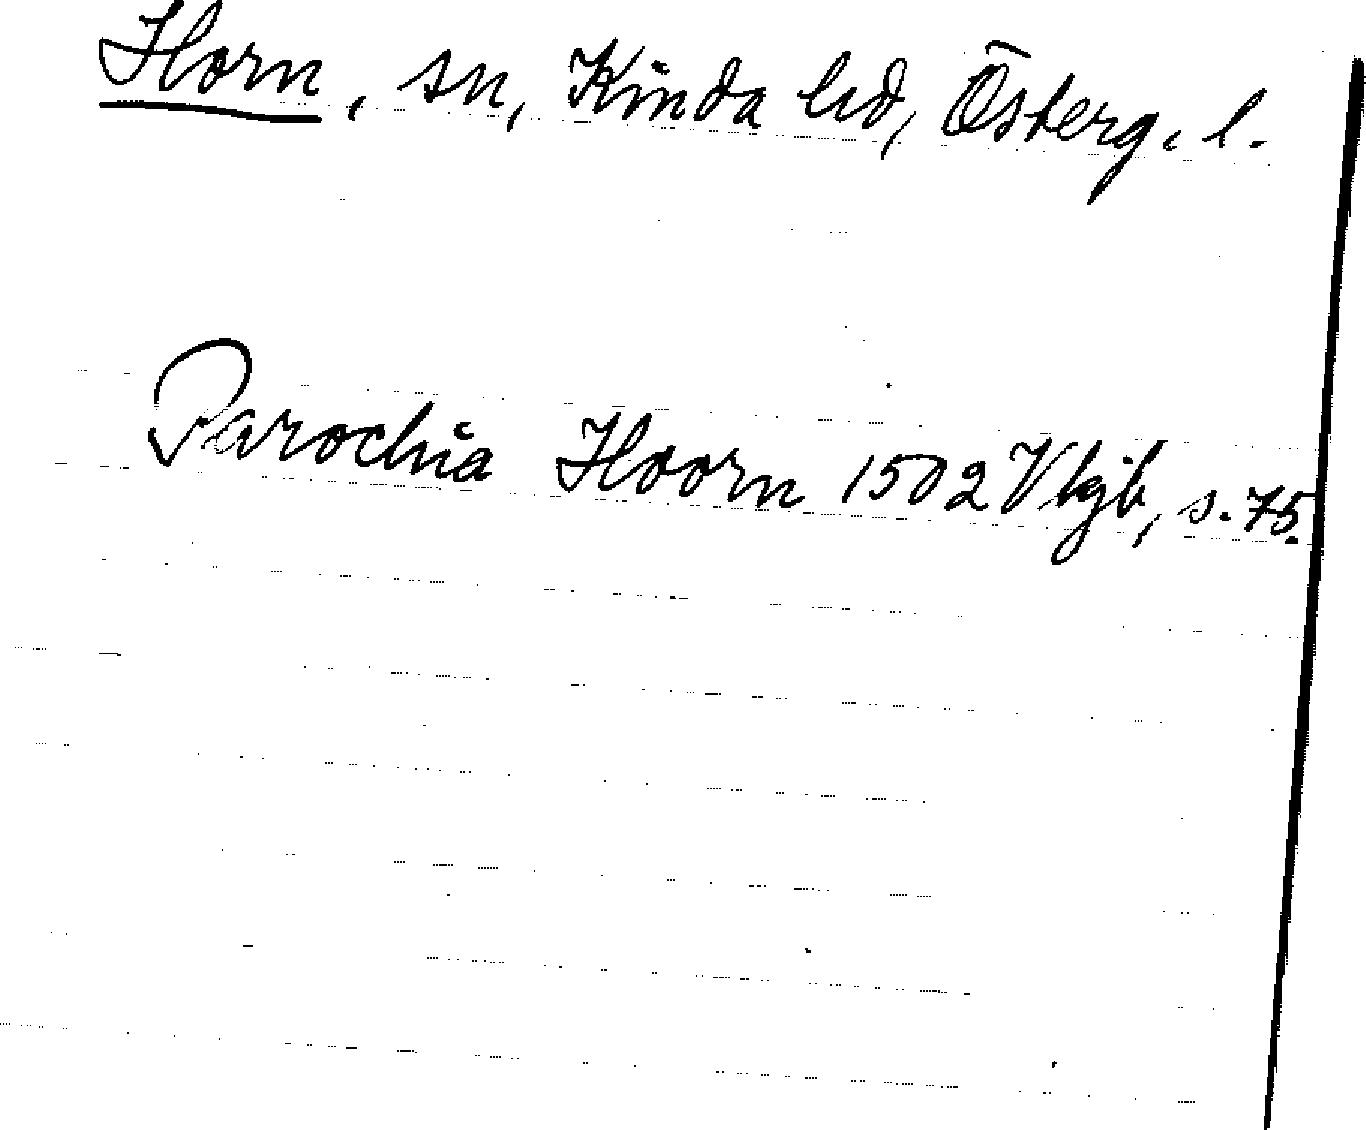 Horn, sn, Kinda hd, Österg. l.
Parochia Hoorn 1502 Vkjb, s. 75.